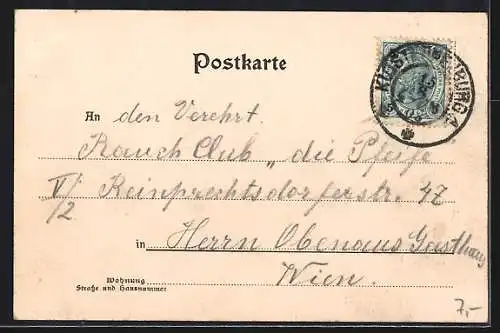 Postkarte
An den Verehrt.
Rauch Club „ die Pfeife
V/2 Reinprechtsdorferstr. 47
in Herrn Obenaus Gasthaus
Wien.
Wohnung
Straße und Hausnummer
7,-